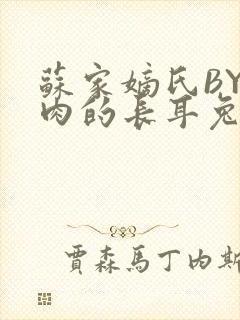 蘇家嫡氏BY
肉的长耳兔
賈森馬丁內斯